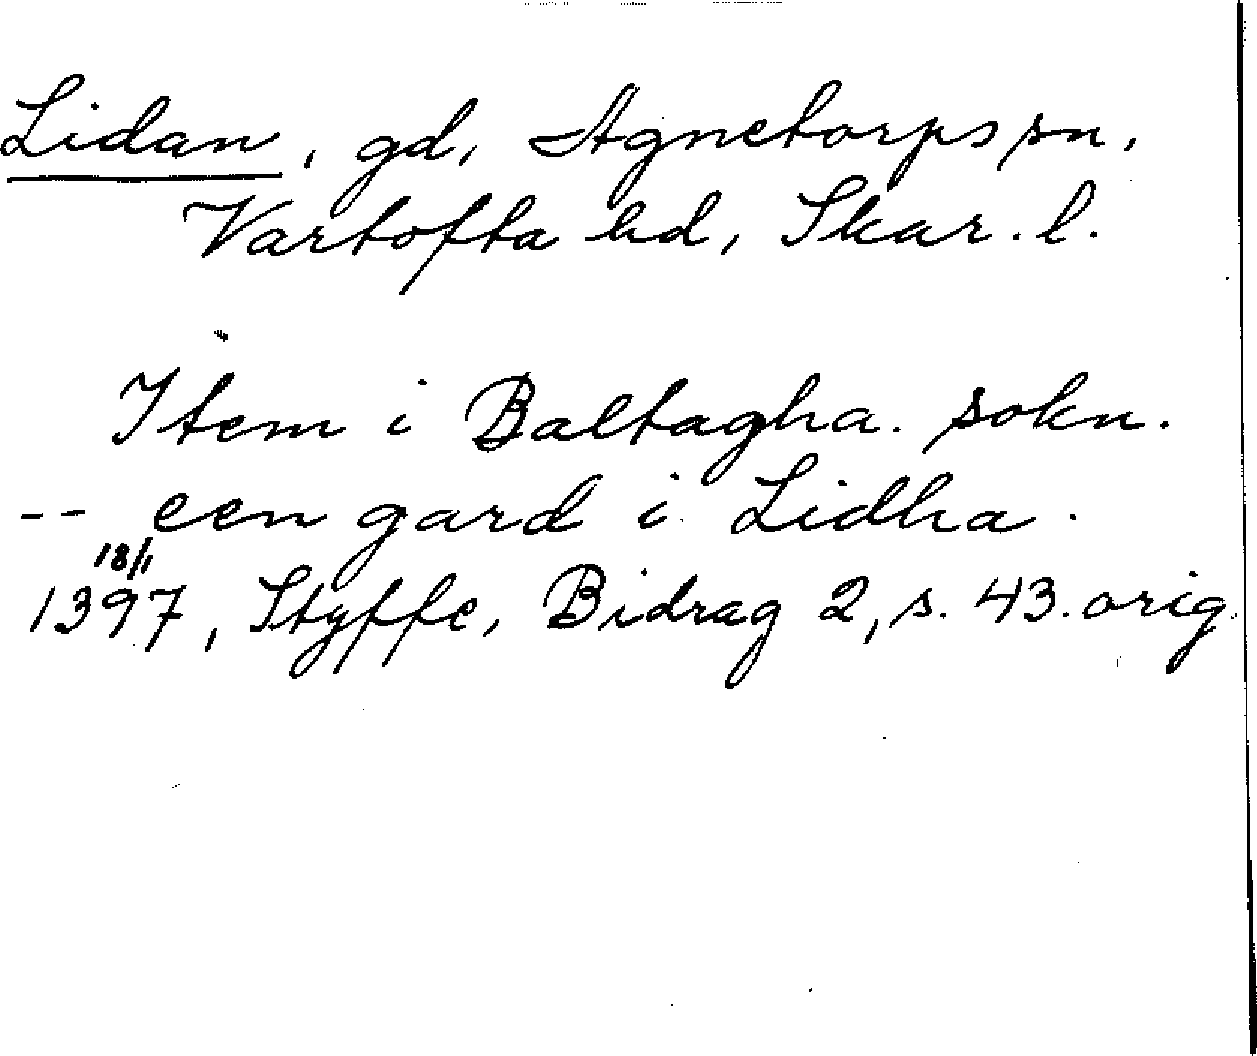 Lidan, gd, Agnetorps sn,
Vartofta hd, Skar. l.
Item i Baltagha. sokn.
-- een gard i Lidha.
18/1
1397, Styffe, Bidrag 2, s. 43. orig.